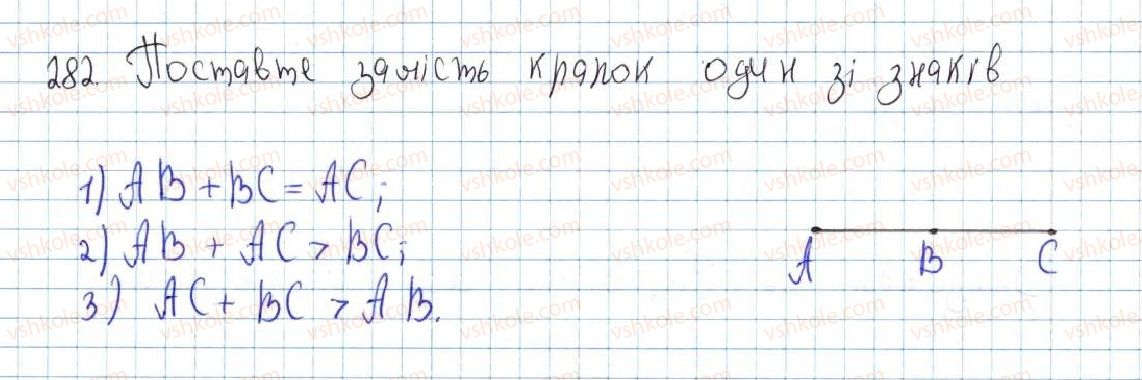 282. Поставте замість крапок один зі знаків
1) AB + BC = AC;
2) AB + AC > BC;
3) AC + BC > AB.
A B C
vshkole.com